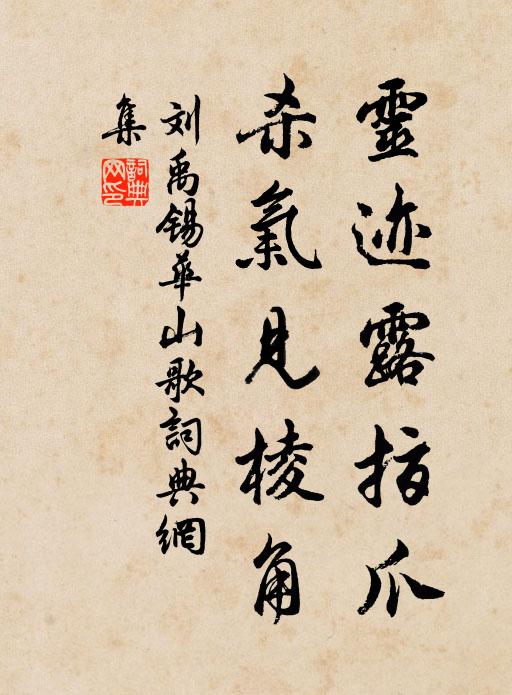 靈迹露指爪
杀氣見棱角
刘禹锡華山歌詞典網
集
詞典网印